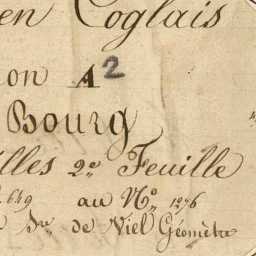 en Coglais
on A2
Bourg
lles 2e Feuille
649 au No 1276
de Viel Géomètre